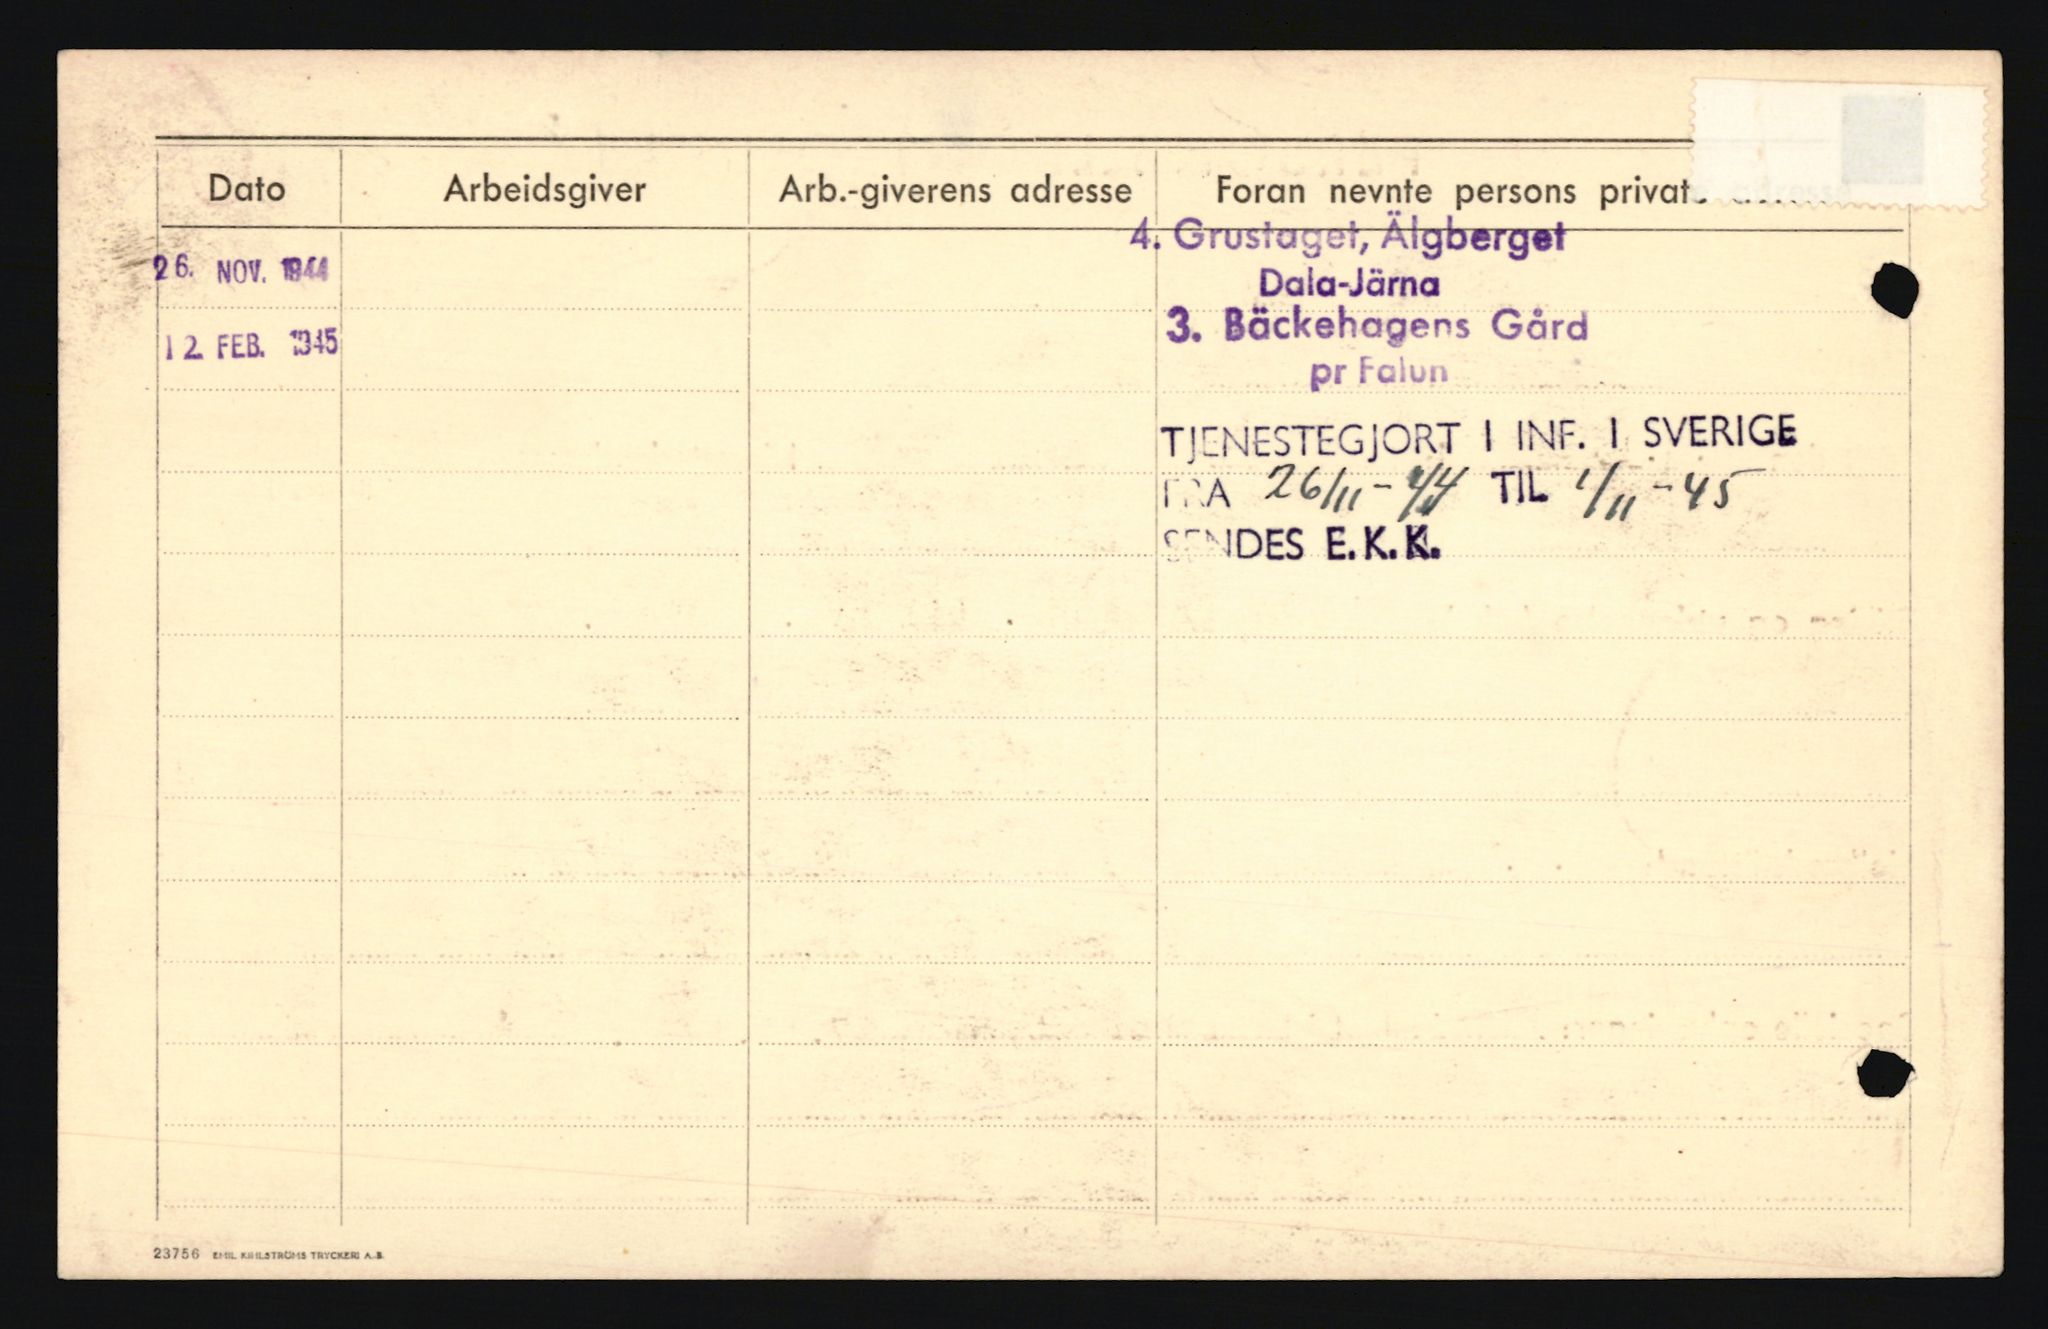 Dato Arbeidsgiver Arb.-giverens adresse Foran nevnte persons private adresse
4. Grustaget, Älgberget
26. NOV. 1944
Dala-Järna
3. Bäckehagens Gård
12. FEB. 1945
pr Falun
TJENESTEGJORT I INF. I SVERIGE
FRA 26/11-44 TIL 1/11-45
SENDES E.K.K.
23756 EMIL KIHLSTRÖMS TRYCKERI A.-B.